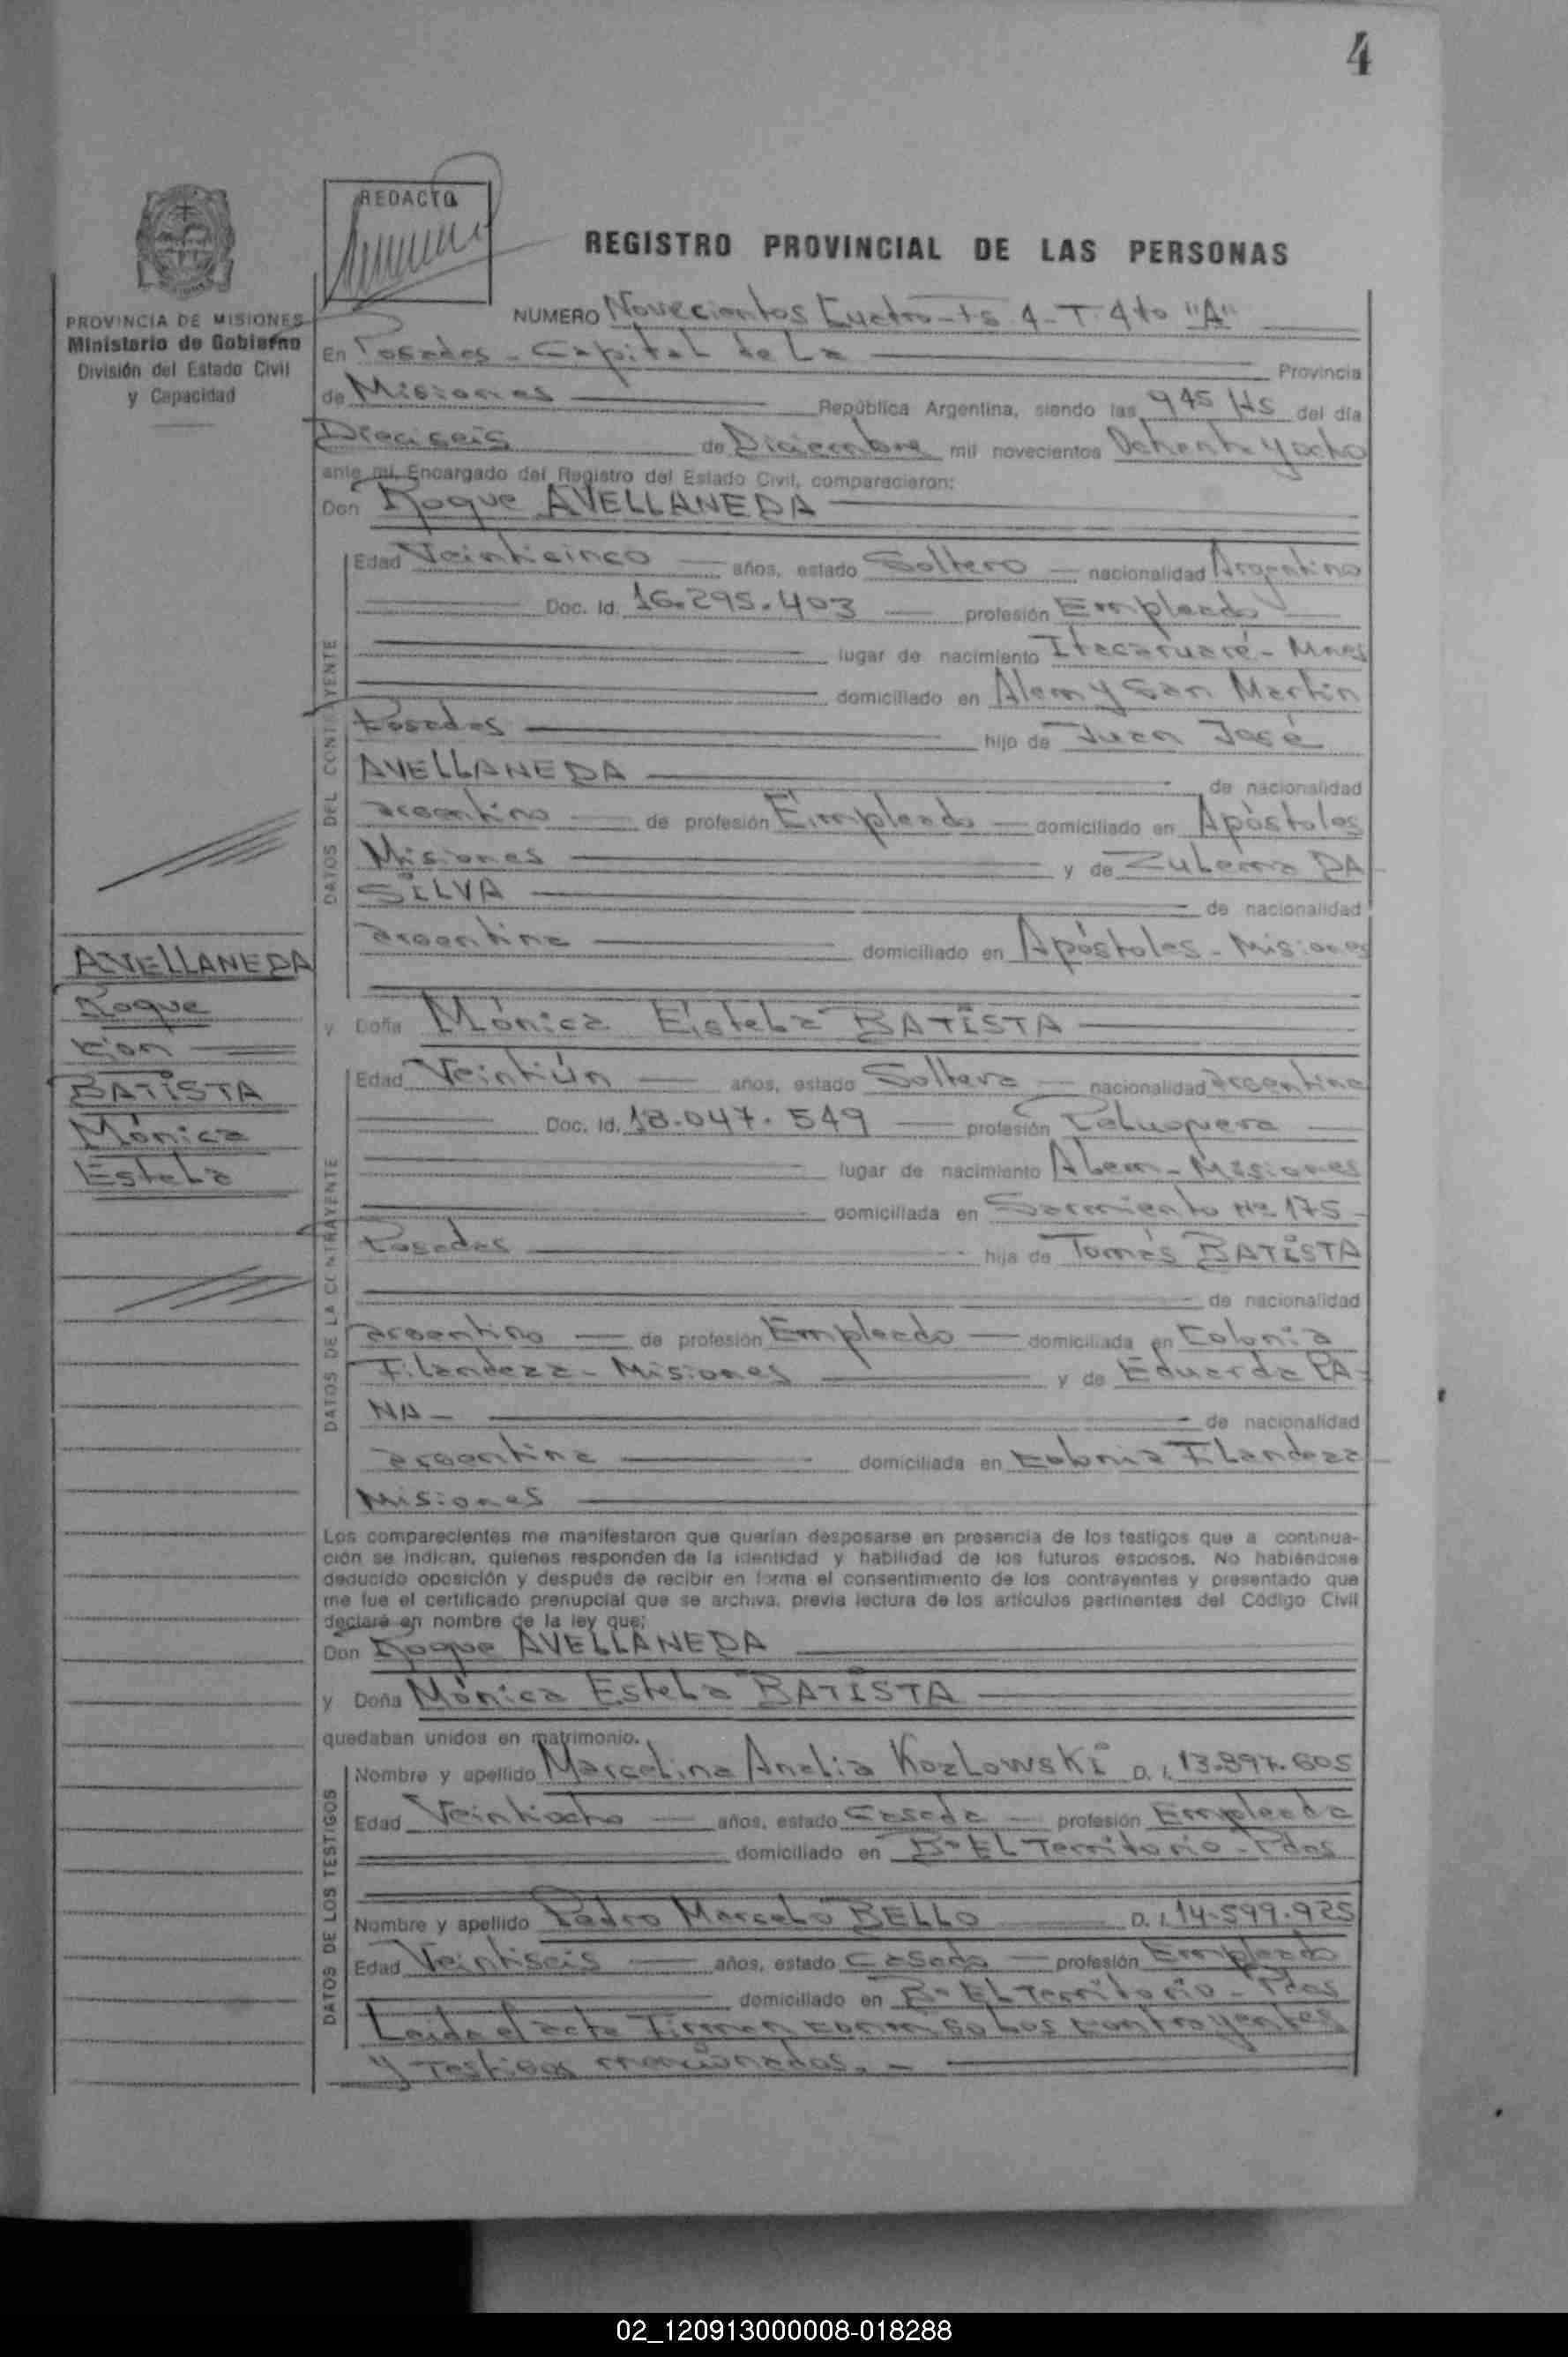 4
REDACTO
REGISTRO PROVINCIAL DE LAS PERSONAS
PROVINCIA DE MISIONES
Ministerio de Gobierno
División del Estado Civil
y Capacidad
NUMERO Novecientos Cuatro - ts 4 - T. 4to "A"
En Posadas - Capital de La Provincia
de Misiones República Argentina, siendo las 945 Hs del día
Dieciseis de Diciembre mil novecientos Ochenta y ocho
ante mí, Encargado del Registro del Estado Civil, comparecieron:
Don Roque AVELLANEDA
DATOS DEL CONTRAYENTE
Edad Veinticinco años, estado Soltero nacionalidad Argentino
Doc. Id. 16.295.403 profesión Empleado
lugar de nacimiento Itacaruaré - Mnes
domiciliado en Alem y San Martín
Posadas hijo de Juan José
AVELLANEDA de nacionalidad
argentino de profesión Empleado domiciliado en Apóstoles
Misiones y de Zulema DA
SILVA de nacionalidad
argentina domiciliado en Apóstoles - Misiones
AVELLANEDA
Roque
con
BATISTA
Mónica
Estela
y Doña Mónica Estela BATISTA
DATOS DE LA CONTRAYENTE
Edad Veintiún años, estado Soltera nacionalidad argentina
Doc. Id. 18.047.549 profesión Peluquera
lugar de nacimiento Alem - Misiones
domiciliada en Sarmiento Nº 175
Posadas hija de Tomás BATISTA
de nacionalidad
argentino de profesión Empleado domiciliada en Colonia
Filandeza - Misiones y de Eduarda PA-
NA - de nacionalidad
argentina domiciliada en Colonia Filandeza
Misiones
Los comparecientes me manifestaron que querían desposarse en presencia de los testigos que a continua-
ción se indican, quienes responden de la identidad y habilidad de los futuros esposos. No habiéndose
deducido oposición y después de recibir en forma el consentimiento de los contrayentes y presentado que
me fue el certificado prenupcial que se archiva, previa lectura de los artículos pertinentes del Código Civil
declaré en nombre de la ley que;
Don Roque AVELLANEDA
y Doña Mónica Estela BATISTA
quedaban unidos en matrimonio.
DATOS DE LOS TESTIGOS
Nombre y apellido Marcelina Analia Kozlowski D. I. 13.897.605
Edad Veintiocho años, estado Casada profesión Empleada
domiciliado en Bº El Territorio - Pdas
Nombre y apellido Pedro Marcelo BELLO D. I. 14.599.925
Edad Veintiseis años, estado Casado profesión Empleado
domiciliado en Bº El Territorio - Pdas
Leida el acta Firman conmigo los contrayentes
y Testigos mencionados. -
02_120913000008-018288